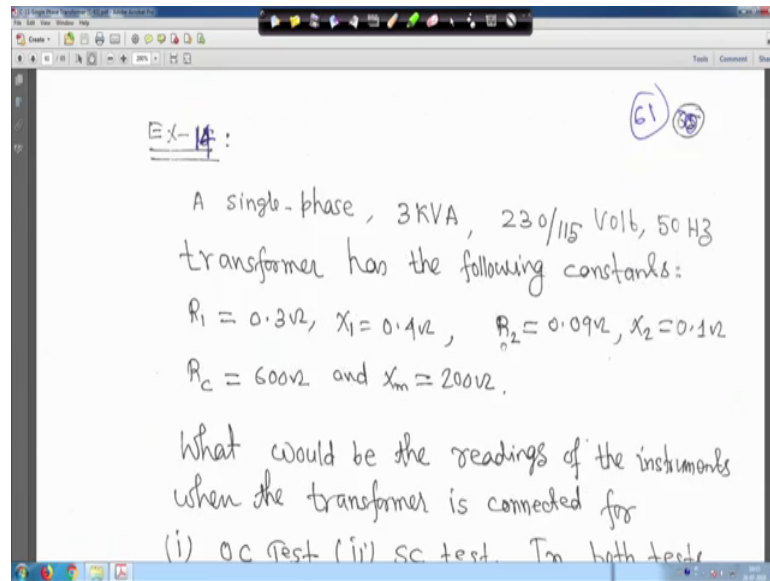 C-13-Single Phase Transformer
File Edit View Window Help
Create
Tools Comment
61
Ex-14:
A single-phase, 3 KVA, 230/115 Volt, 50 HZ
transformer has the following constants:
R1 = 0.3Ω, X1 = 0.4Ω, R2 = 0.09Ω, X2 = 0.1Ω
Rc = 600Ω and Xm = 200Ω.
What would be the readings of the instruments
when the transformer is connected for
(i) OC Test (ii) SC test. In both tests